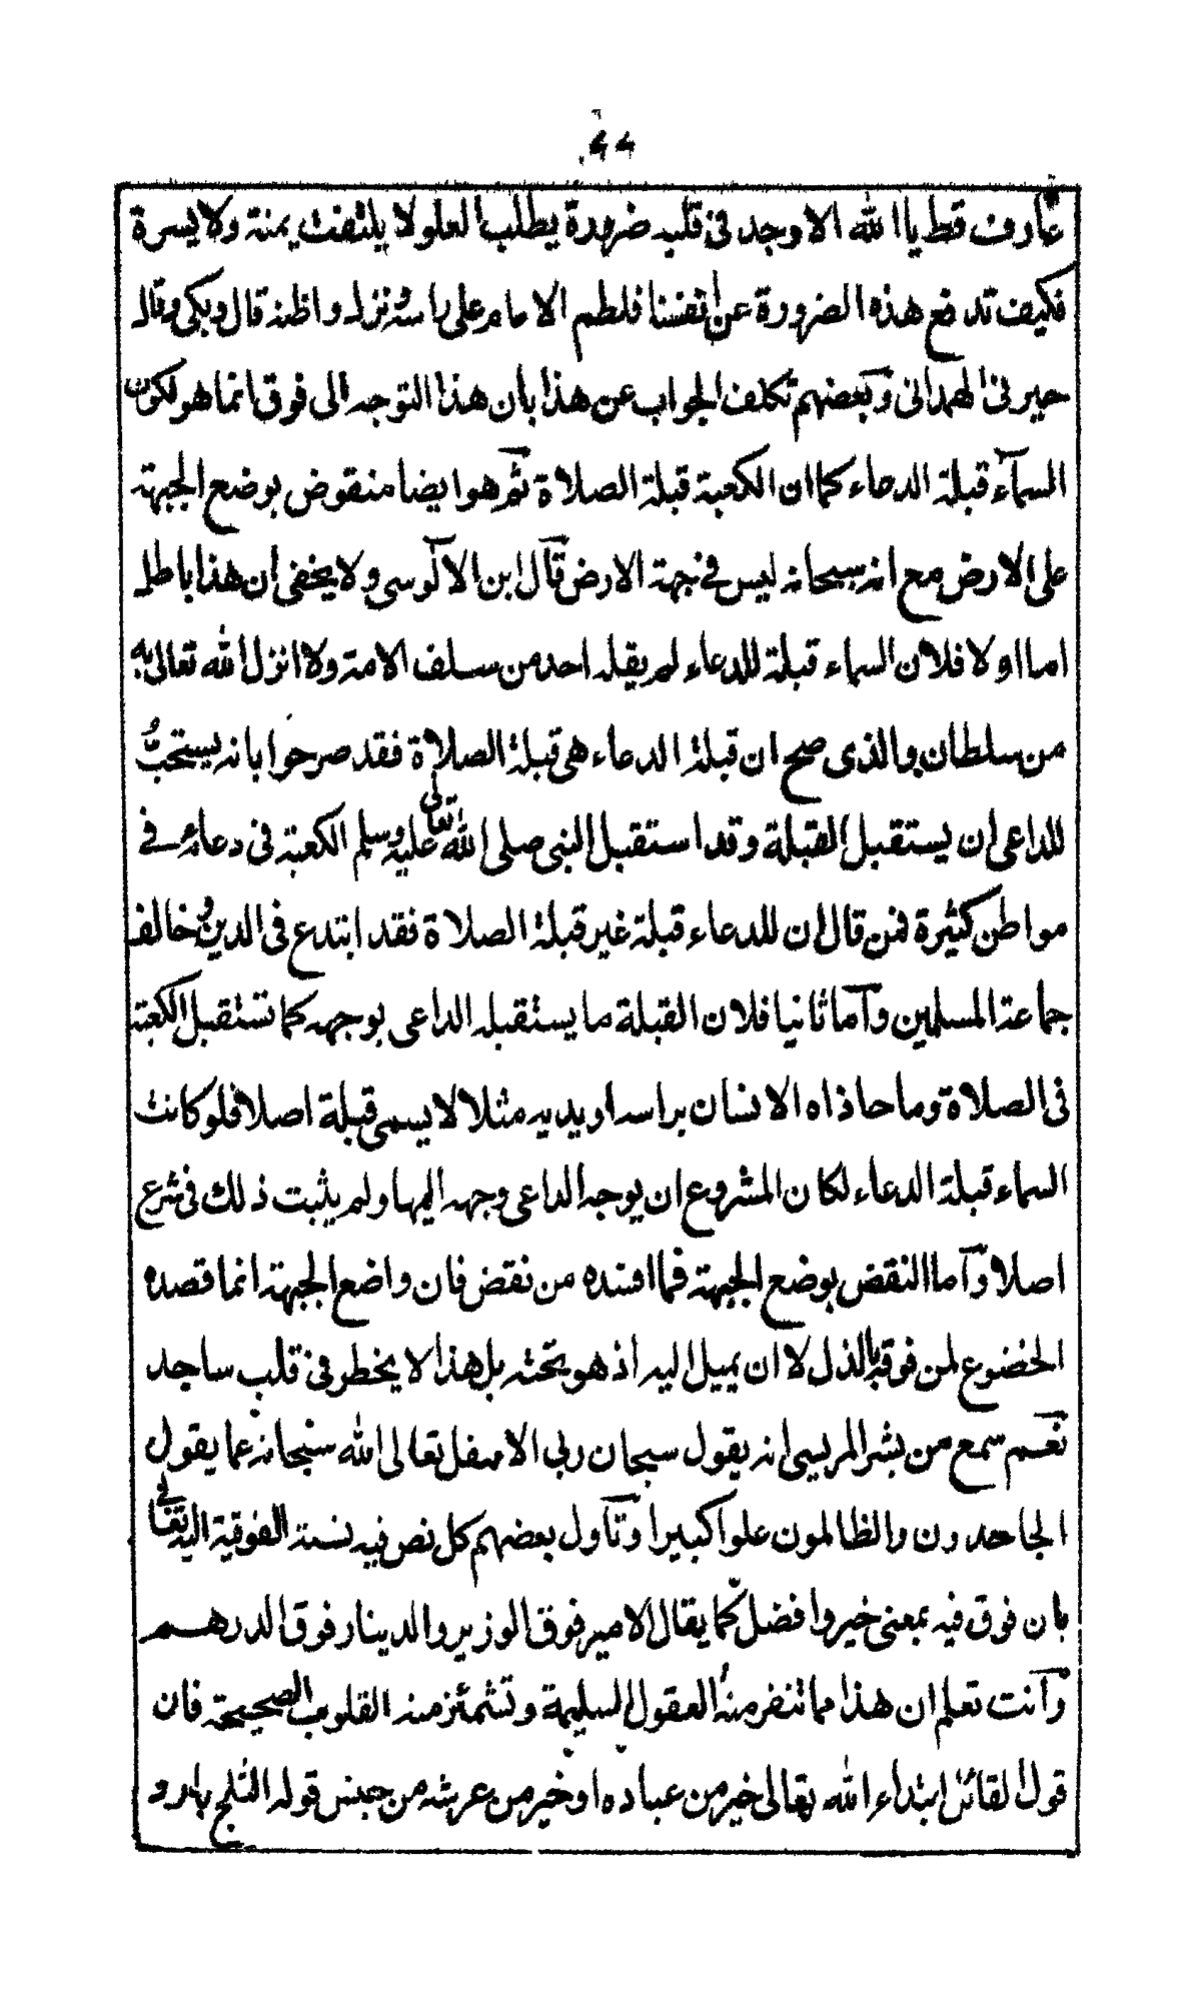 عارف قط يا الله الا وجد في قلبه ضرورة يطلب العلو لا يلتفت يمنة ولا يسرة
فكيف تدفع هذه الضرورة عن انفسنا فلطم الامام على راسه ونزل واظنه قال وبكى وقال
حيرنى الهمدانى وبعضهم تكلف الجواب عن هذا بأن هذا التوجه الى فوق انما هو لكون
السمآء قبلة الدعاء كما ان الكعبة قبلة الصلاة ثم هو ايضا منقوض بوضع الجبهة
على الارض مع انه سبحانه ليس في جهة الارض قال ابن الآلوسى ولا يخفى ان هذا باطل
اما اولا فلان السماء قبلة للدعاء لم يقله احد من سلف الامة ولا انزل الله تعالى به
من سلطان والذى صح ان قبلة الدعاء هى قبلة الصلاة فقد صرحوا بانه يستحبُّ
للداعى ان يستقبل القبلة وقد استقبل النبى صلى الله تعالى عليه وسلم الكعبة فى دعائه في
مواطن كثيرة فمن قال ان للدعاء قبلة غير قبلة الصلاة فقد ابتدع فى الدين وخالف
جماعة المسلمين وآما ثانيا فلان القبلة ما يستقبله الداعى بوجهه كما تستقبل الكعبة
فى الصلاة وما حاذاه الانسان براسه او يديه مثلا لا يسمى قبلة اصلا فلو كانت
السماء قبلة الدعاء لكان المشروع ان يوجه الداعى وجهه اليها ولم يثبت ذلك فى شرع
اصلا وآما النقض بوضع الجبهة فما افسده من نقض فان واضع الجبهة انما قصده
الخضوع لمن فوقه بالذل لا ان يميل اليه اذ هو تحته بل هذا لا يخطر في قلب ساجد
نعم سمع من بشر المريسى انه يقول سبحان ربى الاسفل تعالى الله سبحانه عما يقول
الجاحدون والظالمون علوا كبيرا وتآول بعضهم كل نص فيه نسبة الفوقية اليه تعالى
بان فوق فيه بمعنى خير وافضل كما يقال الامير فوق الوزير والدينار فوق الدرهم
وآنت تعلم ان هذا مما تنفر منه العقول السليمة وتشمئز منه القلوب الصحيحة فان
قول القائل ابتداء الله تعالى خير من عباده او خير من عرشه من جنس قوله الثلج بارد و